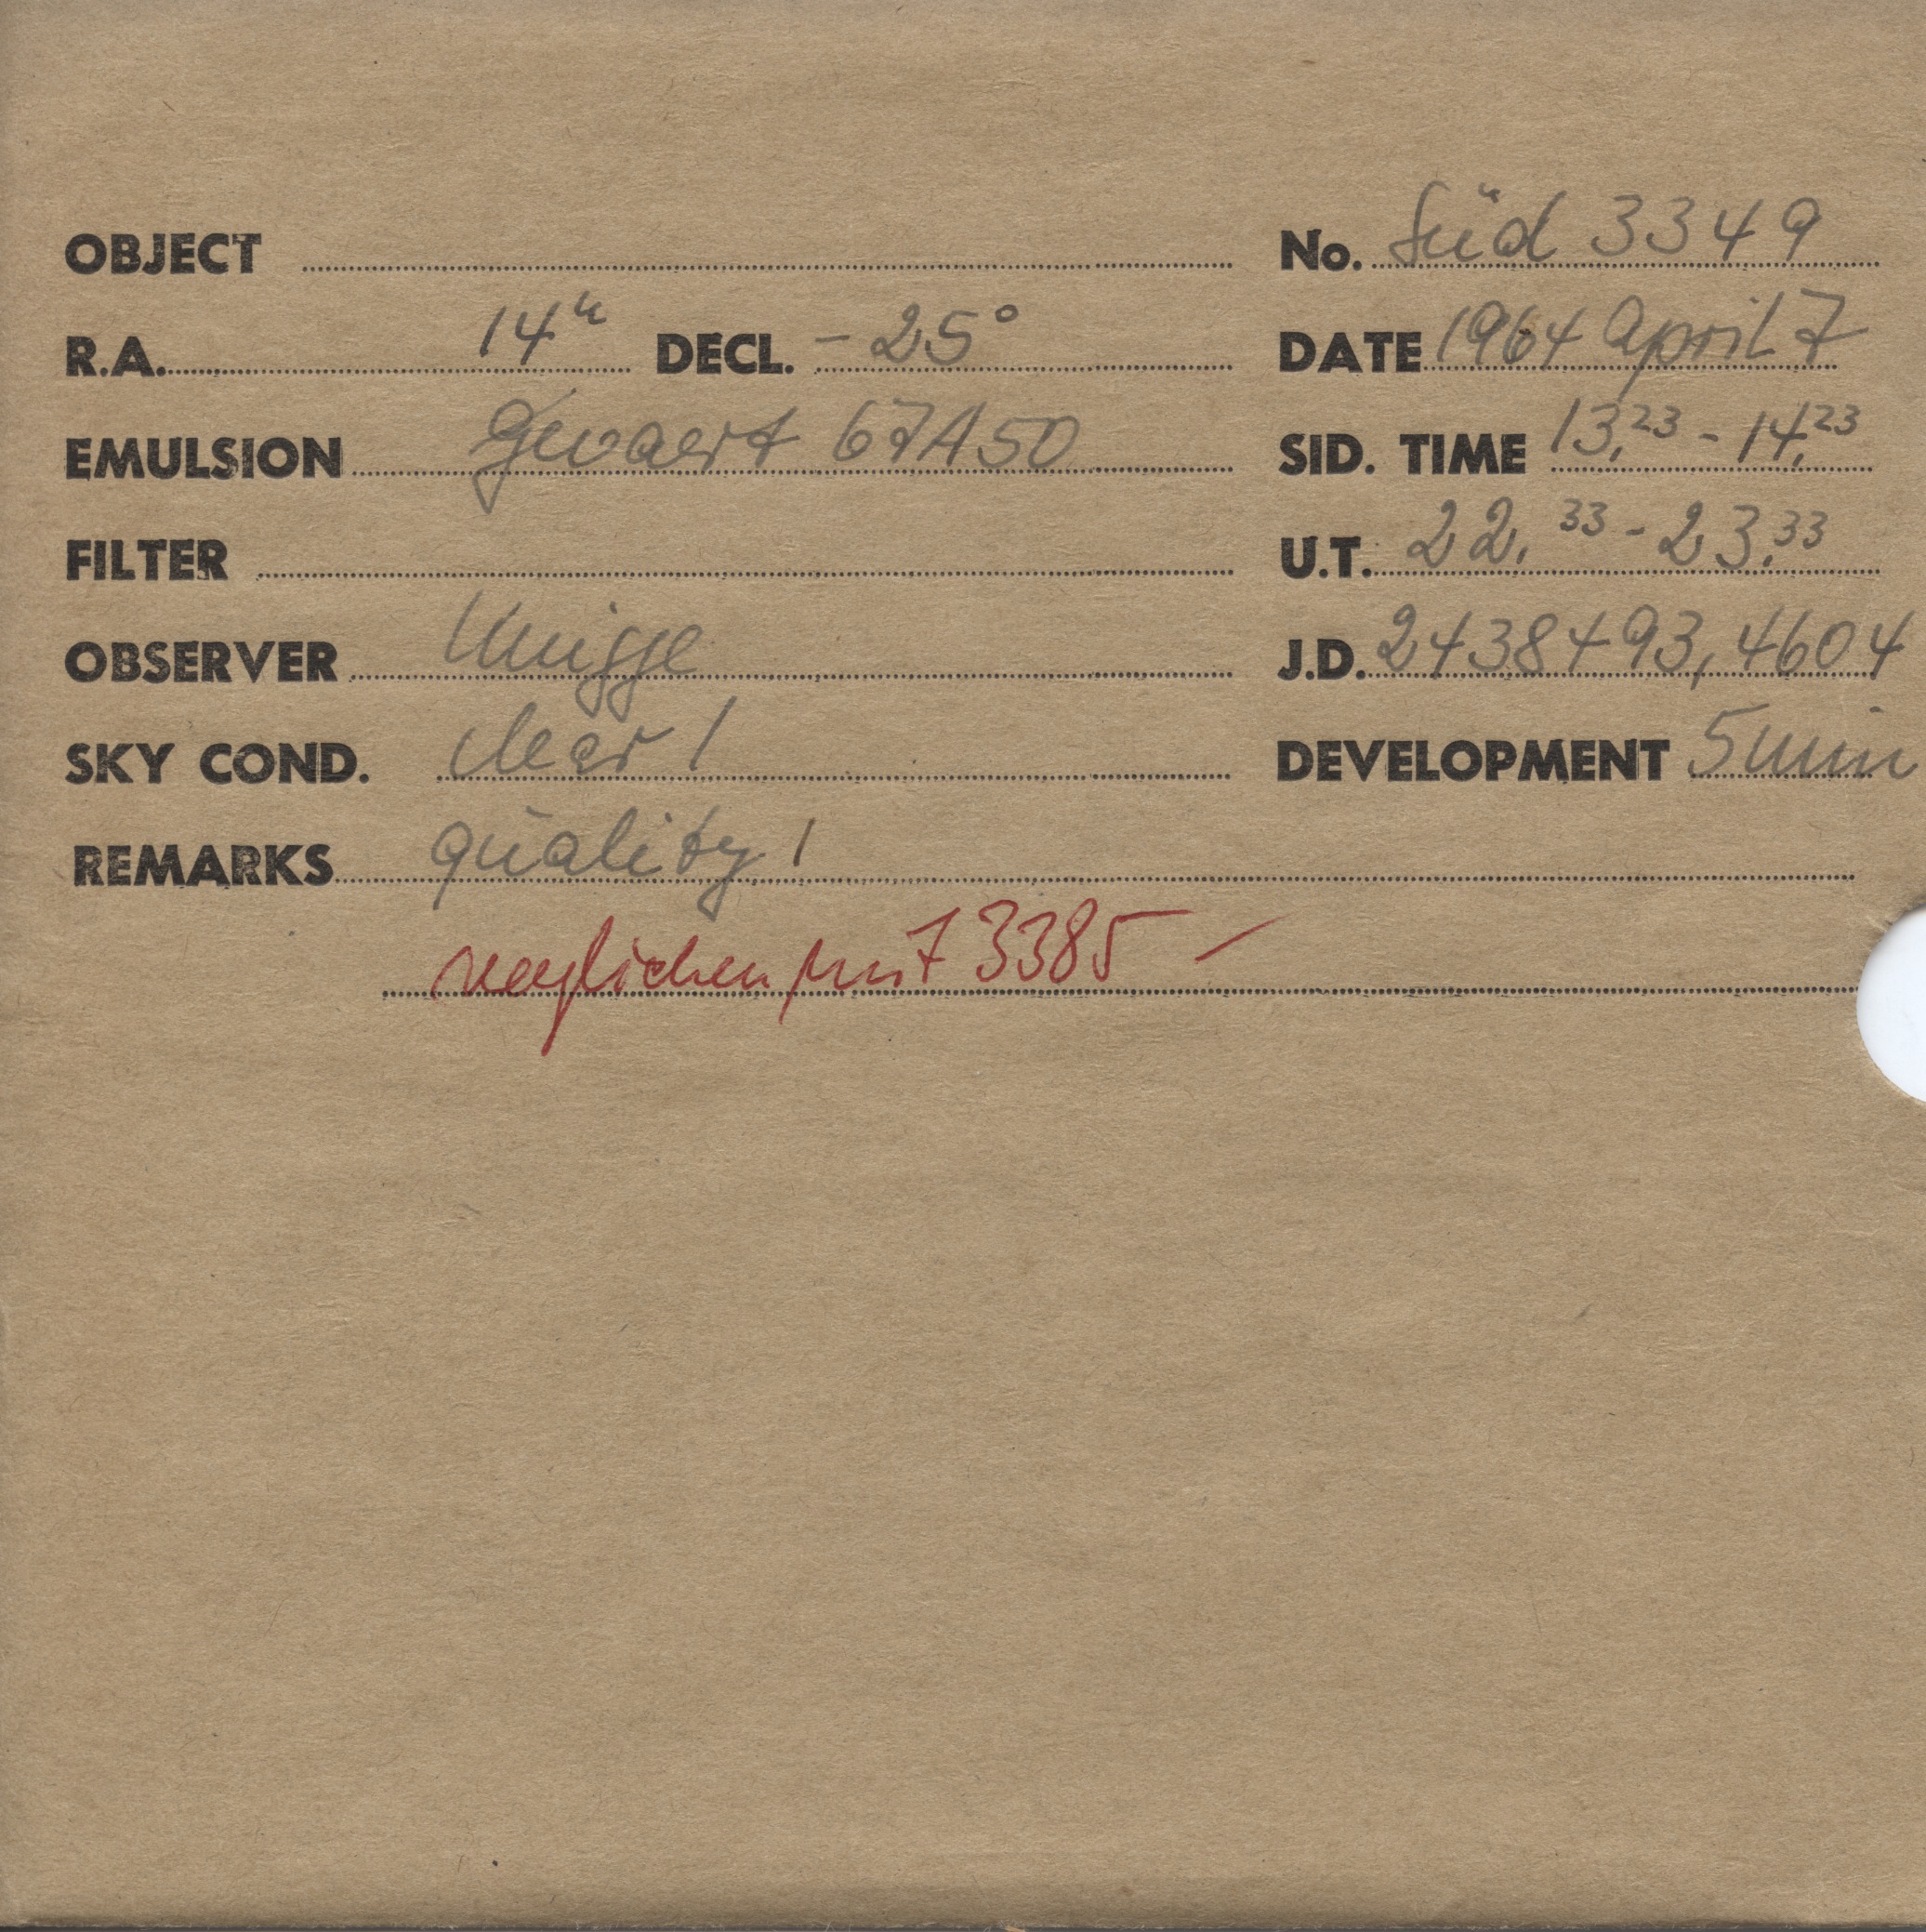 OBJECT No. Süd 3349
R.A. 14h DECL. - 25°
DATE 1964 April 7
EMULSION Gevaert 67A50
SID. TIME 13.23 - 14.23
FILTER
U.T. 22.33 - 23.33
OBSERVER
J.D. 2438493,4604
SKY COND. clear 1
DEVELOPMENT 5 min
REMARKS quality 1
verglichen mit 3385 -